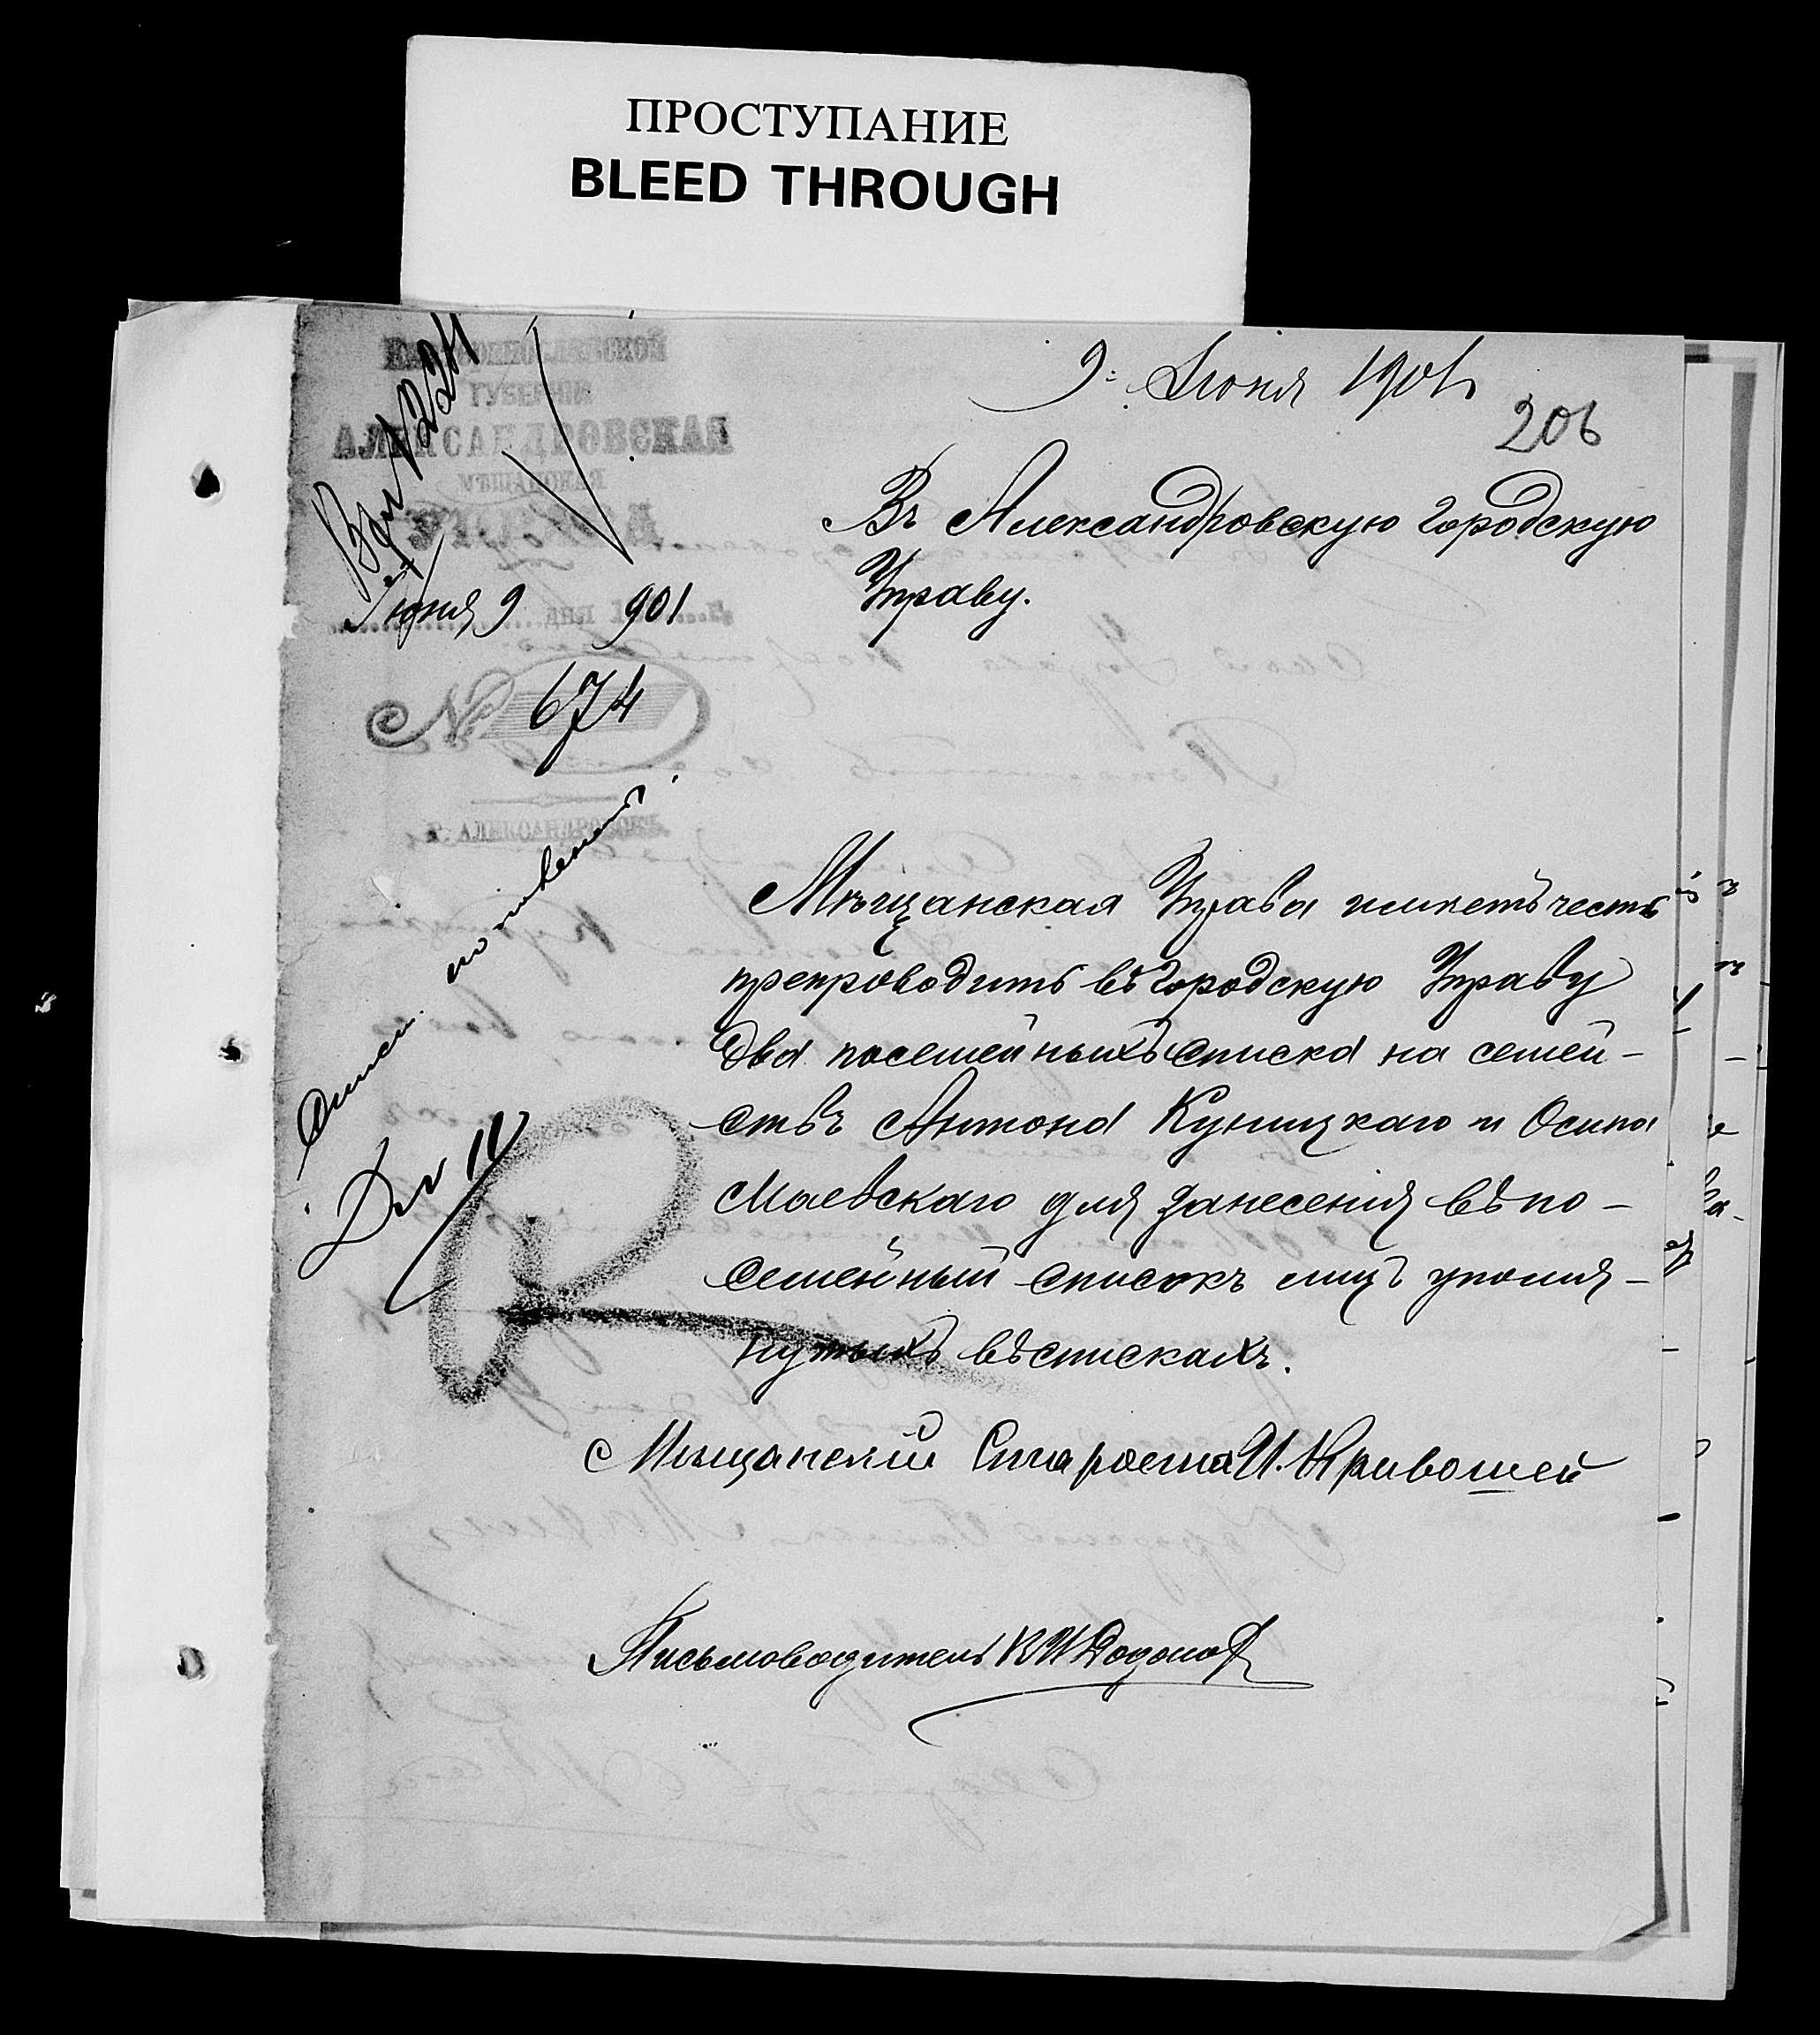 ПРОСТУПАНИЕ
BLEED THROUGH
9: Іюня 1901
206
ГУБЕРНІИ
АЛЕКСАНДРОВСКАЯ
МѢЩАНСКАЯ
УПРАВА
Іюня 9 дня 901
№ 674
Г. АЛЕКСАНДРОВСКЪ.
Въ Александровскую Городскую
Управу.
Мѣщанская Управа имѣетъ честь
препроводить въ Городскую Управу
два посемейныхъ списка на семей-
ствъ Антона Куницкаго и Осипа
Маевскаго для занесенія въ по-
семейный списокъ лицъ упомя-
нутыхъ въ спискахъ.
Мѣщанскій Староста И. Кривошей
Письмоводитель В И Додонов